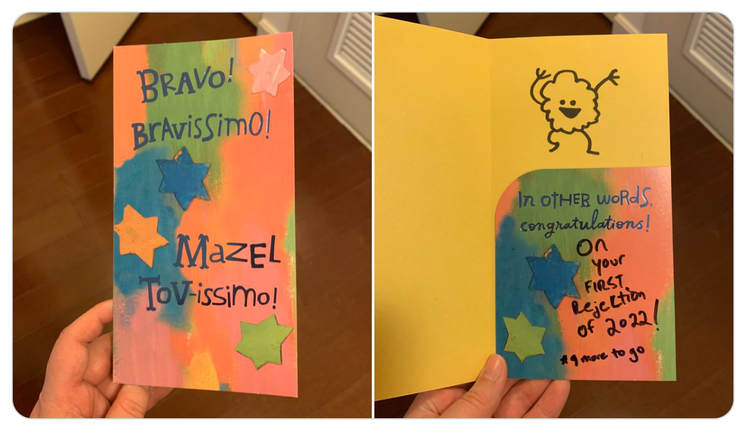 BRAVO!
BRAVISSIMO!
MAZEL
TOV-ISSIMO!
In OTHER WORDS,
congratulations!
On
your
FIRST
Rejection
of 2022!
more to go